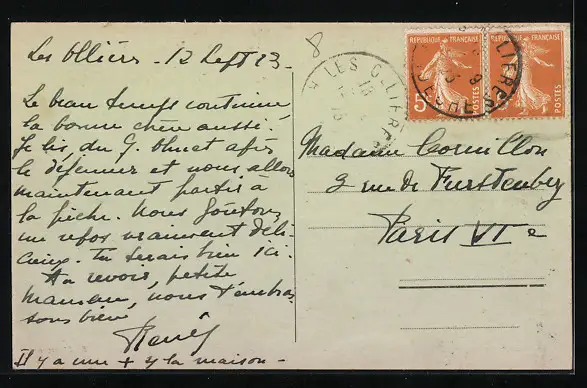 Les Ollières - 12 Sept 23.
Le beau temps continue,
la bonne chère aussi.
Je lis du G. Ohnet après
le déjeuner et nous allons
maintenant partir à
la pêche. Nous goûtons
un repos vraiment déli-
cieux. Tu serais bien ici.
Au revoir, petite
maman, nous t'embras
sons bien
Il y a une + y la maison -
8
LES OLLIERES
REPUBLIQUE FRANÇAISE
5c
POSTES
REPUBLIQUE FRANÇAISE
POSTES
OLLIERES
ARDECHE
Madame Cornillon
2 rue de Furstenberg
Paris VIe